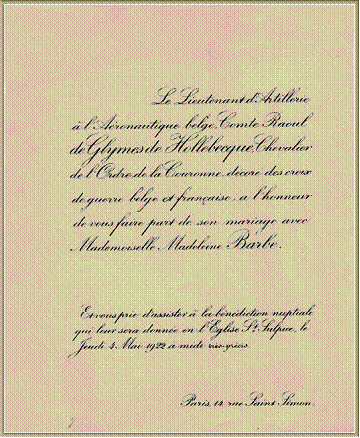 Le Lieutenant d'Artillerie
à l'Aéronautique belge Comte Raoul
de Glymes de Hollebecque, Chevalier
de l'Ordre de la Couronne, décoré des croix
de guerre belge et française, a l'honneur
de vous faire part de son mariage avec
Mademoiselle Madeleine Barbe.
Et vous prie d'assister à la bénédiction nuptiale
qui leur sera donnée en l'Eglise St. Sulpice, le
Jeudi 4 Mai 1922 à midi très-précis
Paris, 14 rue Saint Simon.